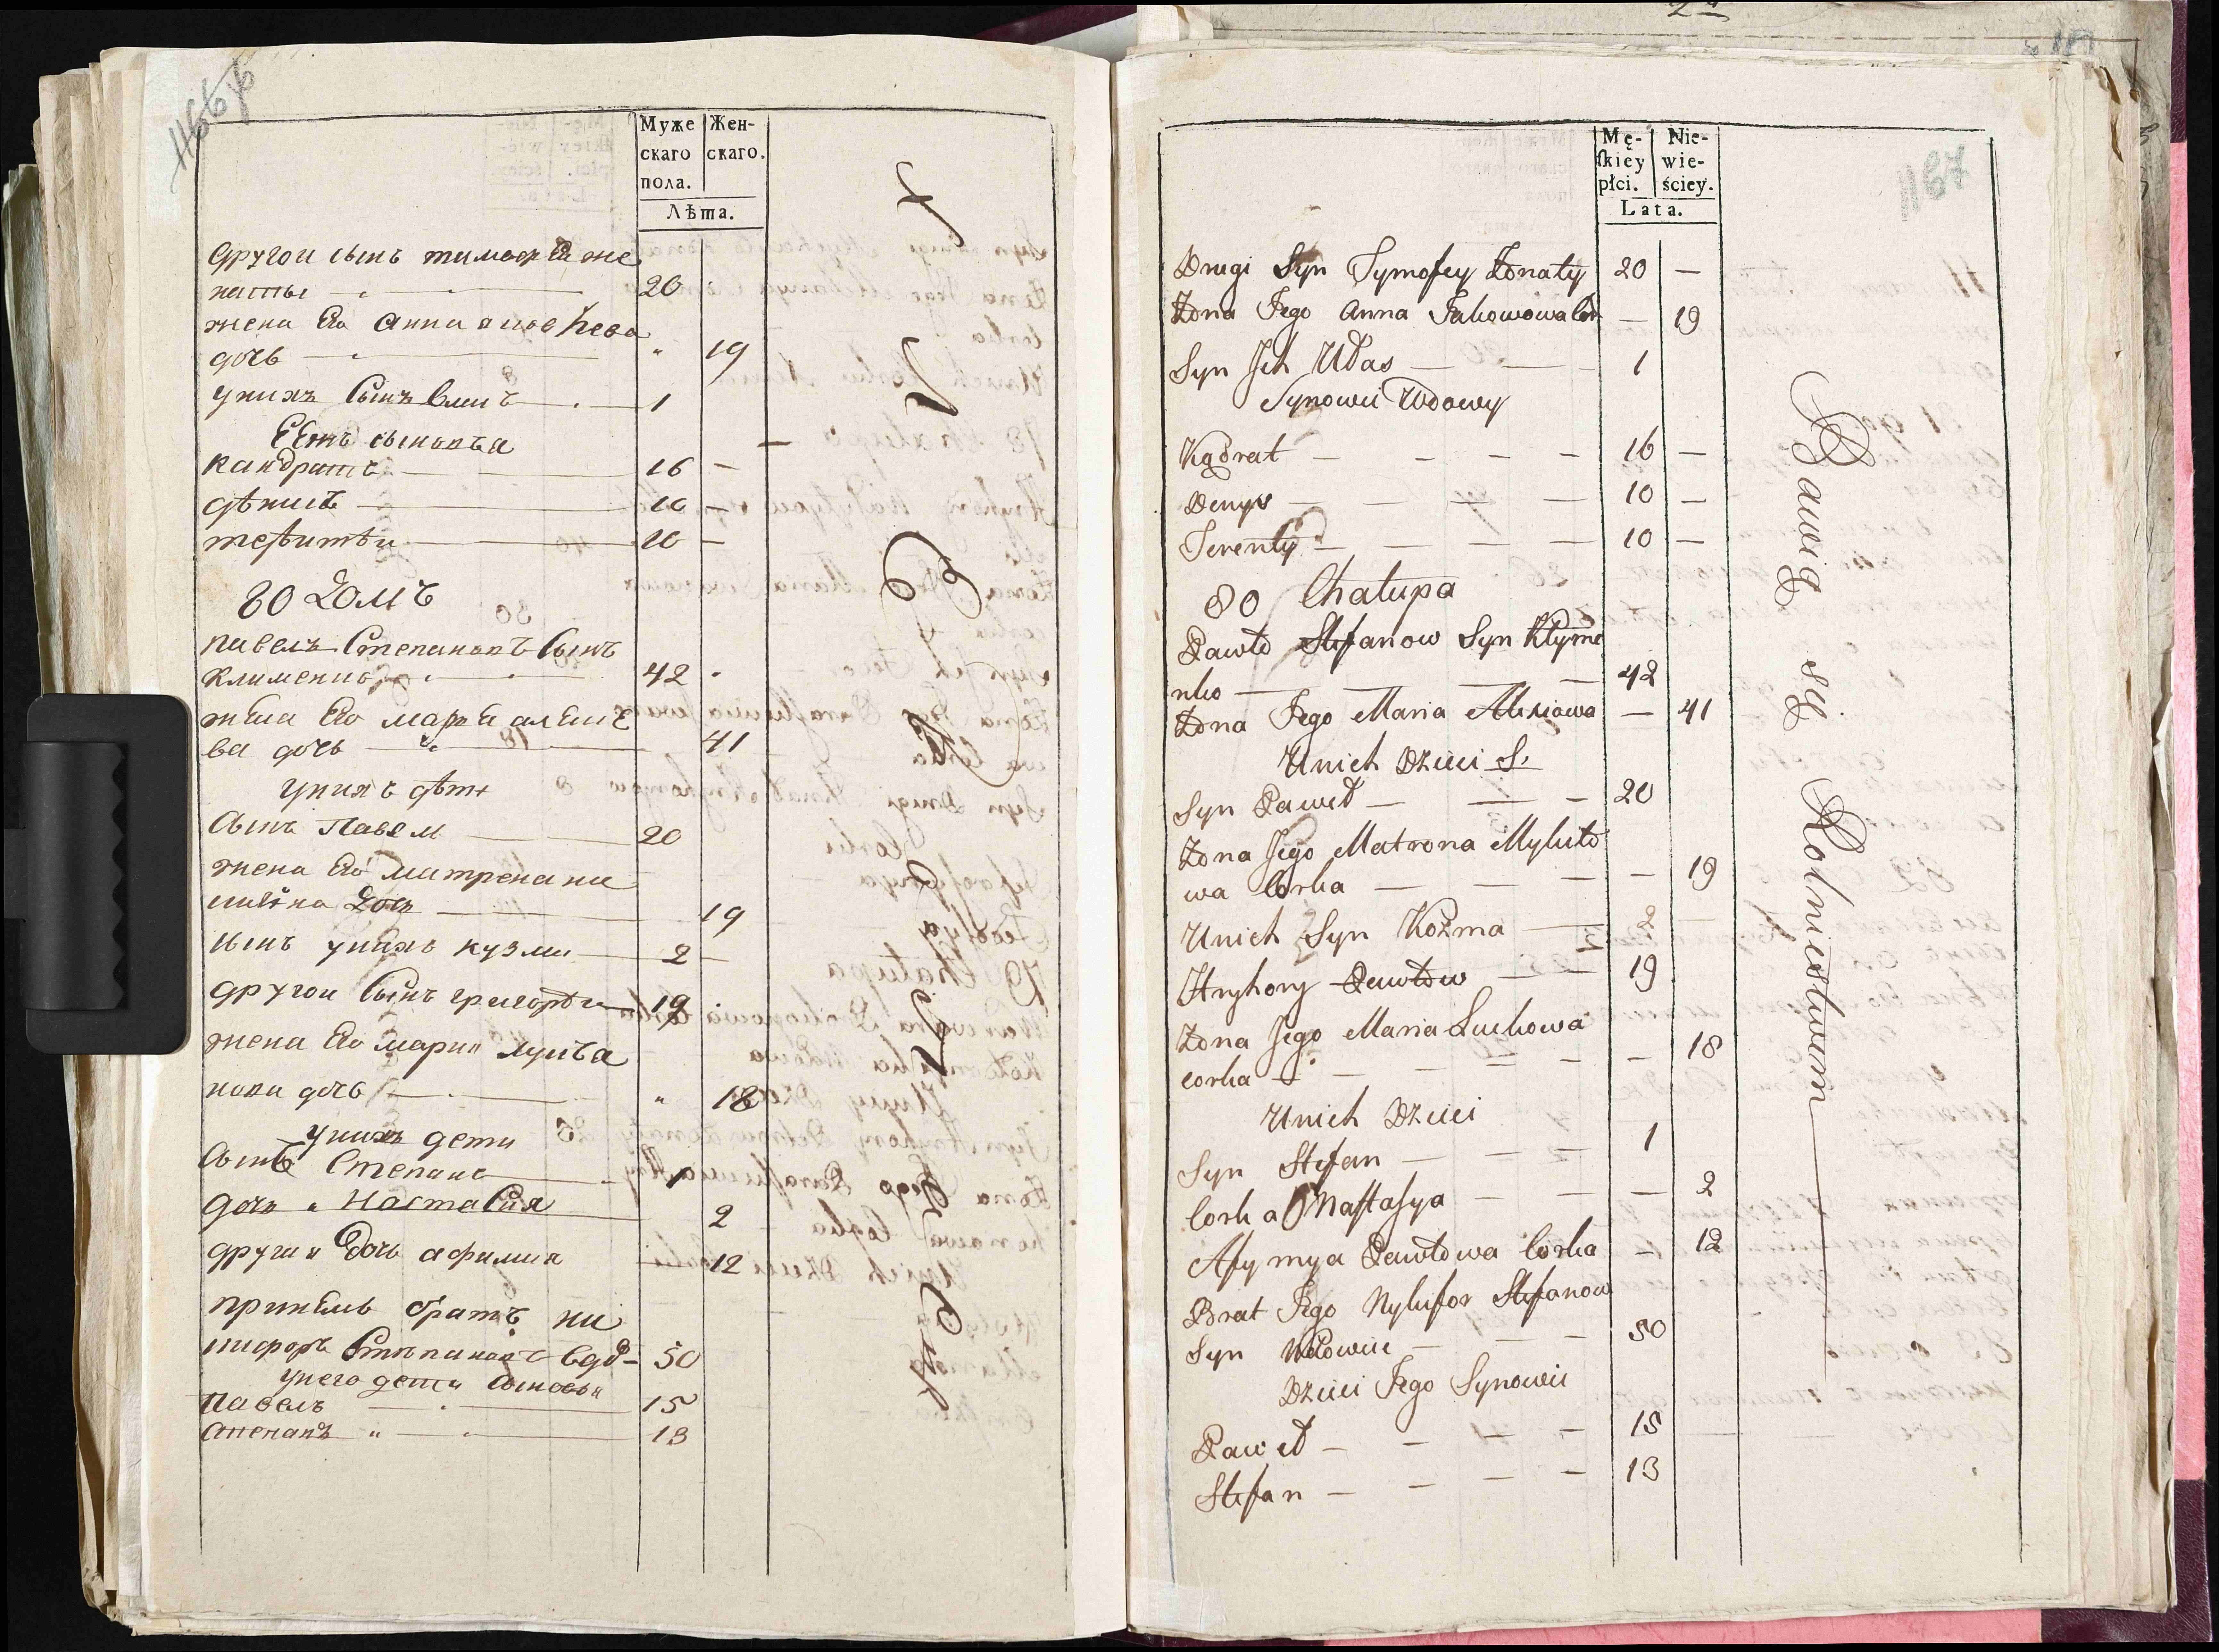 1166 об
Муже
скаго
пола.
Жен-
скаго.
Лѣта.
другои сынъ тимофей же
наты 20
жена Его анна яковлева
дочь 19
унихъ Сынъ власъ 1
Еенъ сыновъа
кандратъ 16
дѣнисъ 10
терѣнтѣи 10
80 Домъ
павелъ Степановъ Сынъ
клименко 42
жена Его марья алексѣ
ва дочь 41
унихъ дѣти
Сынъ Павел 20
жена Его матрена ни
дочь 19
сынъ унихъ кузма 2
другои Сынъ григорѣи 19
жена Его мария лукъа
нова дочь 18
унихъ дети
Сынъ Степанъ 1
дочь Настасия 2
другая дочь афимия 12
приемъ братъ ни
кифоръ Степановъ вдо- 50
унего дети Сыновья
павелъ 15
Степанъ 13
1167
Mę-
skiey
płci.
Nie-
wie-
ściey.
Lata.
Drugi Syn Tymofey Żonaty 20 —
Żona Jego Anna Jakowowa Cor — 19
Syn Jch Ułas 1
Synowii Wdowy
Kądrat 16 —
Denys 10 —
Terenty 10 —
80 Chałupa
Pawło Stefanow Syn Klyme
nko 42
Żona Jego Maria Alexiowa — 41
Unich Dzieci S.
Syn Paweł 20
Żona Jego Matrona Mykito
wa Corka — 19
Unich Syn Kożma 2
Hryhory Pawłow 19
Żona Jego Maria Lukowa
corka — 18
Unich Dzieci
Syn Stefan 1
Corka Nastasya — 2
Afymya Pawłowa Corka — 12
Brat Jego Nykifor Stefanow
Syn Wdowiec 50
Dzieci Jego Synowii
Paweł 15
Stefan 13
Bawią się Rolnictwem